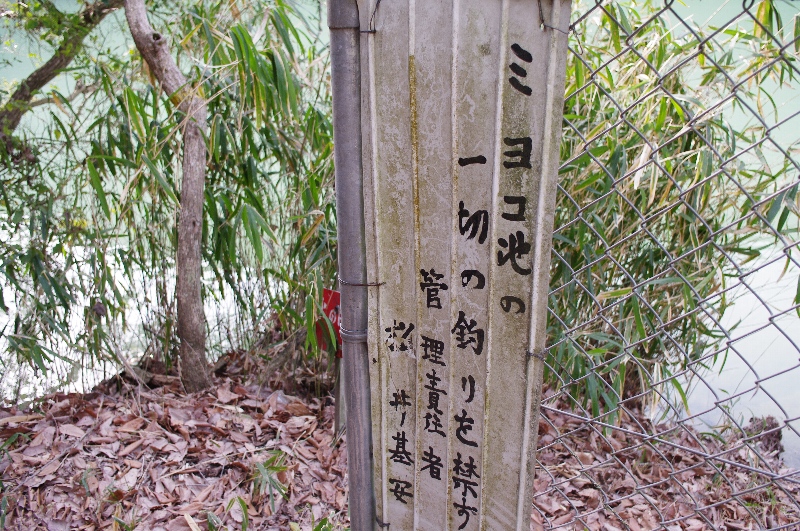 ミヨコ池の
一切の釣りを禁ず
管理責任者
松井基安